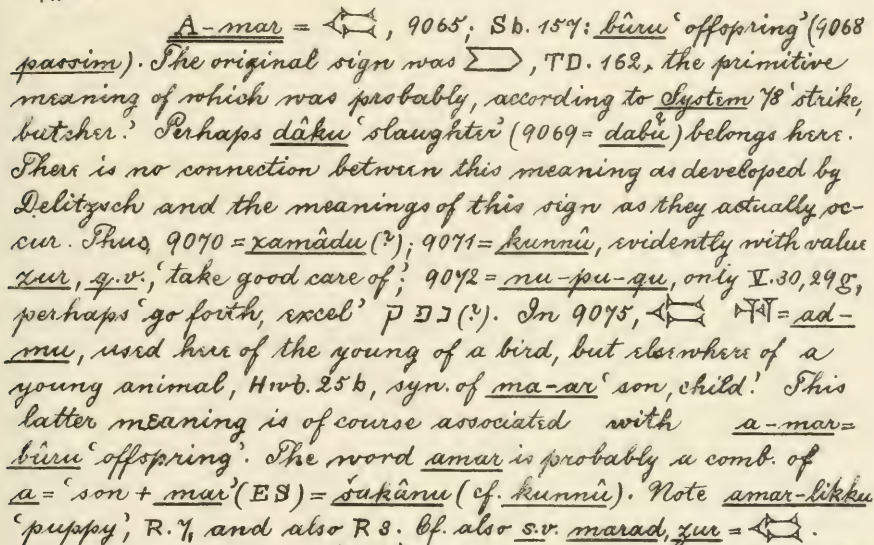 A-mar = 𒀫, 9065; Sb. 157: bûru ‘offspring’ (9068
passim). The original sign was , TD. 162, the primitive
meaning of which was probably, according to System 78 ‘strike,
butcher.’ Perhaps dâku ‘slaughter’ (9069 = dabû̊) belongs here.
There is no connection between this meaning as developed by
Delitzsch and the meanings of this sign as they actually oc-
cur. Thus, 9070 = xamâdu (?); 9071 = kunnû, evidently with value
zur, q.v., ‘take good care of’; 9072 = nu-pu-qu, only V. 30, 29 g,
perhaps ‘go forth, excel’ נפק (?). In 9075, 𒀫 𒄷 = ad-
mu, used here of the young of a bird, but elsewhere of a
young animal, Hwb. 25b, syn. of ma-ar ‘son, child.’ This
latter meaning is of course associated with a-mar=
bûru ‘offspring’. The word amar is probably a comb. of
a = ‘son + mar’ (ES) = šakânu (cf. kunnû). Note amar-likku
‘puppy’, R. 7, and also R 8. Cf. also s.v. marad, zur = 𒀫.